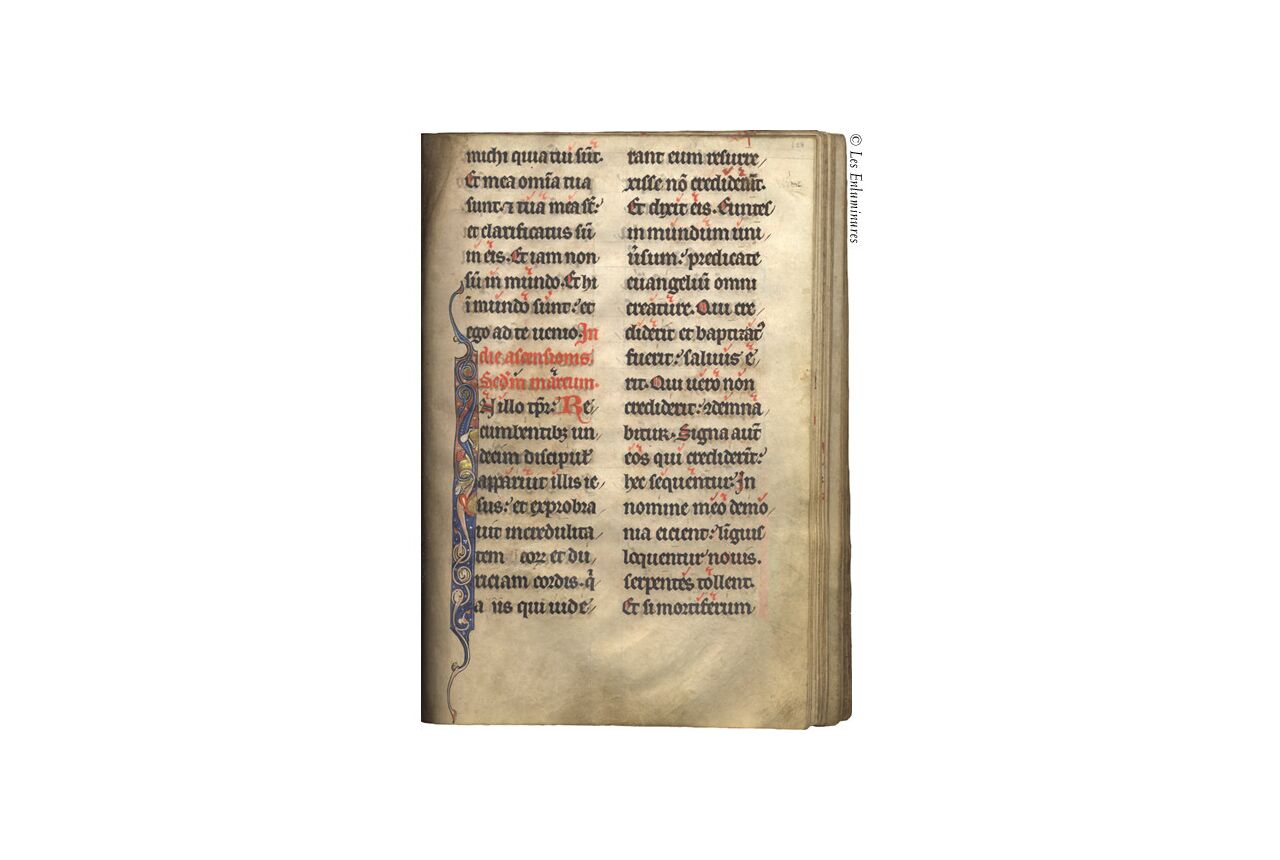 michi quia tui sūt.
Et mea om̄ia tua
sunt. ⁊ tua mea st̄:
et clarificatus sū
in eis. Et iam non
sū in mundo. Et hi
ī mundo sunt: et
ego ad te uenio. In
die ascensionis.
Secdm̄ marcum.
N illo tp̄r: Re
cumbentibꝫ un
decim discipul'
apparuit illis ie
sus: et exprobra
uit incredulita
tem coꝝ et du
riciam cordis. q̄
a iis qui uide
rant eum resurre
xisse nō crediderūt.
Et dixit eis. Euntes
in mundum uni
ūsum: predicate
euangeliū omni
creature. Qui cre
diderit et baptizat᾽
fuerit: saluus e
rit. Qui uero non
crediderit: ꝯdemna
bitur. Signa aut̄
eos qui crediderīt:
hec sequentur. In
nomine meo demo
nia eicient: līguis
loquentur nouis.
serpentes tollent.
Et si mortiferum
© Les Enluminures